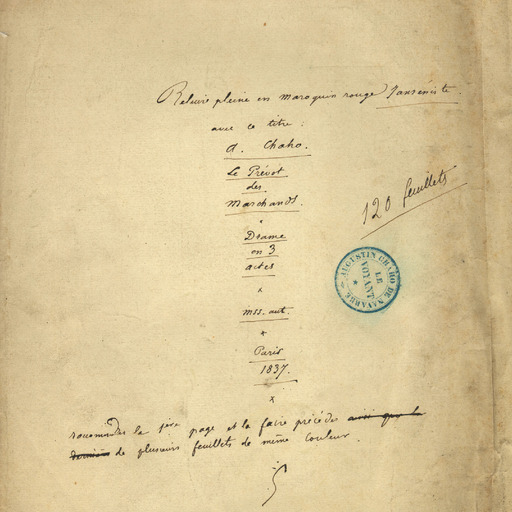 Reliure pleine en maroquin rouge Janséniste
avec ce titre :
A. Chaho.
Le Prévot
des
Marchands.
Drame
en 3
actes
x
mss. aut.
x
Paris
1837.
x
120 feuillets
AUGUSTIN CHAHO DE NAVARRE
LE
VOYANT
raccommoder la 1ère page et la faire précéder ainsi que la
dernière de plusieurs feuillets de même couleur.